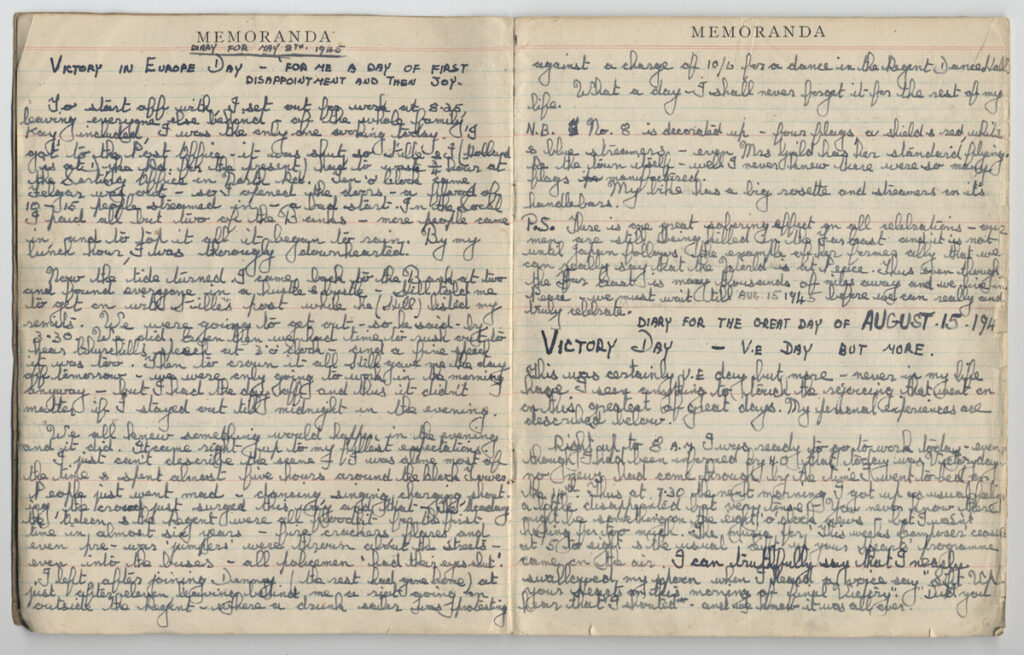 MEMORANDA
DIARY FOR MAY 8TH. 1945
VICTORY IN EUROPE DAY - FOR ME A DAY OF FIRST
DISAPPOINTMENT AND THEN JOY.
To start off with I set out for work at 8.35
leaving everyone else behind of the whole family
Kay included, I was the only one working today. I
got to the Post Office it was shut so Tillie & I
had to wait ¾ hour at
the Sortie Office in North Rd. Ten o'clock came
was out - so I opened the doors - a flood of
10 - 15 people streamed in - a bad start. In the
I paid all but two of the Banks - more people came
in, and to top it all it began to rain. By my
lunch hour I was thorougly downhearted.
Now the tide turned I came back to the Bank at two
and found everyone in a hustle & bustle - Still told me
to get on with Tillie's post while he (Still) listed my
remits. We were going to get out - so he said - by
3-30 We did. Even then we had time to rush out to
hear Churchills speech at 3 o'clock - and a fine speech
it was too. Then to crown it all Still gave me the day
off tomorrow - we were only going to work in the morning
anyway - but I had the day off and thus it didn't
matter if I stayed out till midnight in the evening.
We all knew something would happen in the evening
and it did. It came right up to my fullest expectations.
I just can't describe the scene! I was alone most of
the time & spent almost five hours around the Clock Tower
People just went mad - dancing singing charging shout-
ing the crowd just surged this way and that - The
the & the Regent were all floodlit for the first
time in almost six years - fire crackers, flares and
even pre-war 'jumpers' were thrown about the streets -
even into the buses - all policemen had their eyes shut.
I left, after joining Danny (the rest had gone home) at
just after eleven leaving behind me a riot going on
outside the Regent - where a drunk sailor was protesting
MEMORANDA
against a charge of 10/6 for a dance in the Regent Dance Hall.
What a day - I shall never forget it for the rest of my
life.
N.B. No. 8 is decorated up - four flags, a shield & red white
& blue streamers - even Mrs Guild has her standard flying.
As the town itself - well I never knew there were so many
flags manufactured.
My bike has a big rosette and streamers on its
handlebars.
P.S. There is one great sobering effect on all celebrations - our
men are still being killed in the Far East and it is not
until Japan follows the example of her former ally that we
can really say that the World is at Peace. Thus even though
the Far East is many thousands of miles away and we live in
Peace - we must wait till AUG. 15 1945 before we can really and
truly celebrate.
DIARY FOR THE GREAT DAY OF AUGUST. 15 - 194
VICTORY DAY - V.E DAY BUT MORE.
This was certainly V.E day but more - never in my life
have I seen anything to touch the rejoicing that went on
on this greatest of great days. My personal experiences are
described below.
Right up to 8 A.M I was ready to go to work today - even
though I had been informed by that today was Victory day
no news had come through by the time I went to bed on
the 14th. Thus at 7.30 the next morning I got up as usual feeling
a little disappointed but very tense - You never know there
might be something on the eight o'clock news - but I wasn't
hoping for too much. The music for This weeks composer ceased
at 5 to eight & the usual "Lift up your Hearts" programme
came on the air. I can truthfully say that I nearly
swallowed my spoon when I heard a voice say "Lift UP
your hearts on this morning of final Victory". "Did you
hear that" I shouted - and we knew it was all over.